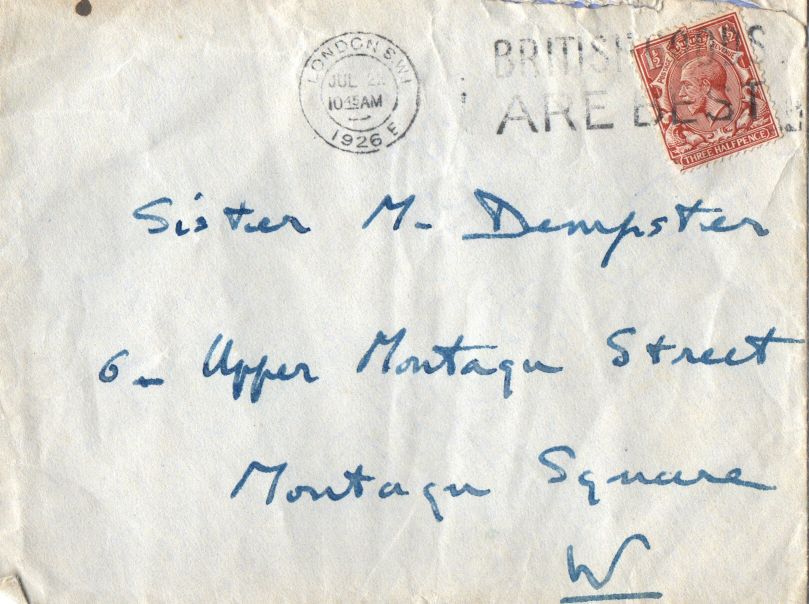 LONDON S.W.1
JUL 2
10 15 AM
1926 E
BRITISH GOODS
ARE BEST
1½ 1½
THREE HALFPENCE
Sister M. Dempster
6 - Upper Montagu Street
Montagu Square
W